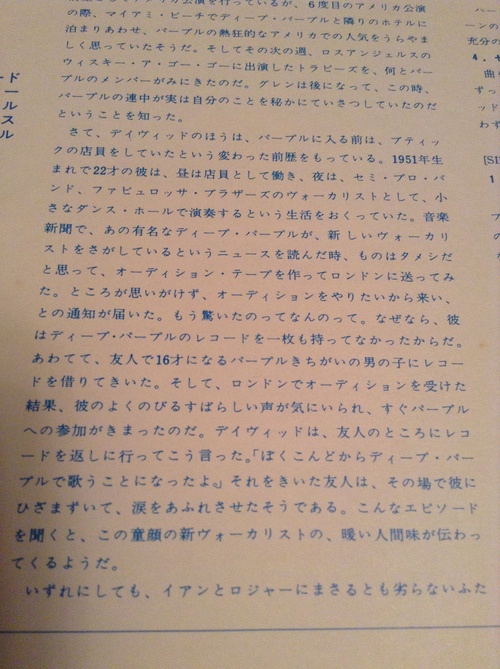 の際、マイアミ・ビーチでディープ・パープルと隣りのホテルに
泊まりあわせ、パープルの熱狂的なアメリカでの人気をうらやま
しく思っていたそうだ。そしてその次の週、ロスアンジェルスの
ウィスキー・ア・ゴー・ゴーに出演したトラピーズを、何とパー
プルのメンバーがみにきたのだ。グレンは後になって、この時、
パープルの連中が実は自分のことを秘かにていさつしていたのだ
ということを知った。
さて、デイヴィッドのほうは、パープルに入る前は、ブティッ
クの店員をしていたという変わった前歴をもっている。1951年生
まれで22才の彼は、昼は店員として働き、夜は、セミ・プロ・バ
ンド、ファビュロッサ・ブラザーズのヴォーカリストとして、小
さなダンス・ホールで演奏するという生活をおくっていた。音楽
新聞で、あの有名なディープ・パープルが、新しいヴォーカリ
ストをさがしているというニュースを読んだ時、ものはタメシだ
と思って、オーディション・テープを作ってロンドンに送ってみ
た。ところが思いがけず、オーディションをやりたいから来い、
との通知が届いた。もう驚いたのってなんのって。なぜなら、彼
はディープ・パープルのレコードを一枚も持ってなかったからだ。
あわてて、友人で16才になるパープルきちがいの男の子にレコー
ドを借りてきた。そして、ロンドンでオーディションを受けた
結果、彼のよくのびるすばらしい声が気にいられ、すぐパープル
への参加がきまったのだ。デイヴィッドは、友人のところにレコ
ードを返しに行ってこう言った。「ぼくこんどからディープ・パー
プルで歌うことになったよ」それをきいた友人は、その場で彼に
ひざまずいて、涙をあふれさせたそうである。こんなエピソード
を聞くと、この童顔の新ヴォーカリストの、暖い人間味が伝わっ
てくるようだ。
いずれにしても、イアンとロジャーにまさるとも劣らないふた